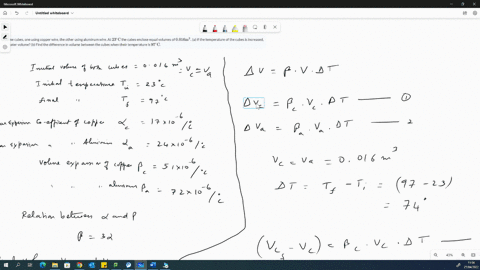 Untitled whiteboard
cubes, one using copper wire, the other using aluminum wire. At 23°C the cubes enclose equal volumes of 0.016m³. (a) If the temperature of the cubes is increased,
volume? (b) Find the difference in volume between the cubes when their temperature is 97°C.
Initial volume of both cubes = 0.016 m³ = Vc = Va
Initial temperature Ti = 23°c
final " Tf = 97°c
expansion Co-efficient of copper αc = 17×10⁻⁶/°c
expansion " " Aluminum αa = 24×10⁻⁶/°c
Volume expansion of copper βc = 51×10⁻⁶/°c
" " " aluminum βa = 72×10⁻⁶/°c
Relation between α and β
β = 3α
ΔV = β · V · ΔT
ΔVc = βc · Vc · ΔT —— ①
ΔVa = βa · Va · ΔT —— 2
Vc = Va = 0.016 m³
ΔT = Tf − Ti = (97 − 23)
= 74°
(Vcf − Vc) = βc · Vc · ΔT ——